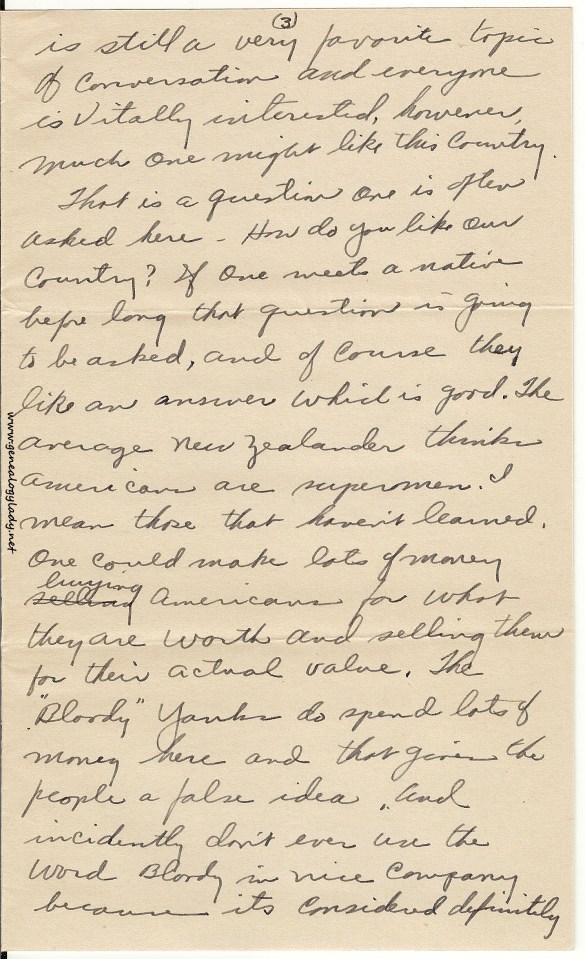 (3)
is still a very favorite topic
of conversation and everyone
is vitally interested, however,
much one might like this Country.
That is a question one is often
asked here - How do you like our
Country? If one meets a native
before long that question is going
to be asked, and of course they
like an answer which is good. The
average New Zealander thinks
Americans are supermen. I
mean those that haven't learned.
One could make lots of money
buying
selling Americans for what
they are worth and selling them
for their actual value. The
"Bloody" Yanks do spend lots of
money here and that gives the
people a false idea. And
incidently don't ever use the
word Bloody in nice company
because its considered definitely
www.genealogylady.net